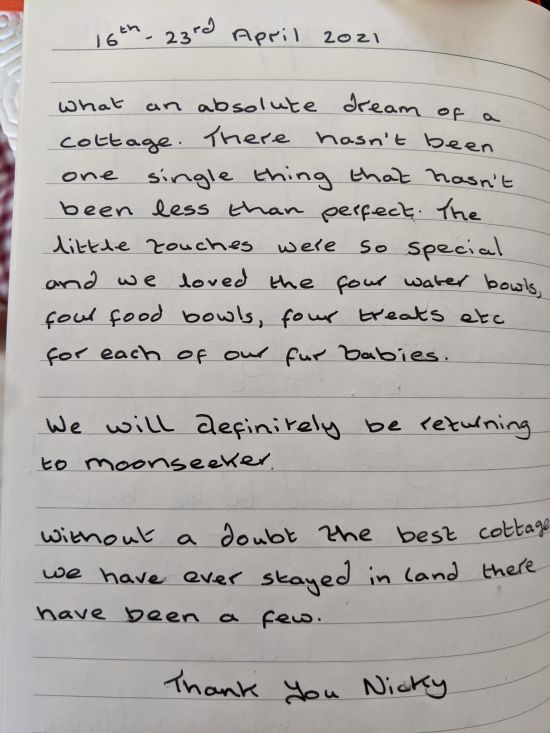 16th - 23rd April 2021
What an absolute dream of a
cottage. There hasn't been
one single thing that hasn't
been less than perfect. The
little touches were so special
and we loved the four water bowls,
four food bowls, four treats etc
for each of our fur babies.
We will definitely be returning
to moonseeker.
without a doubt the best cottage
we have ever stayed in (and there
have been a few.
Thank You Nicky